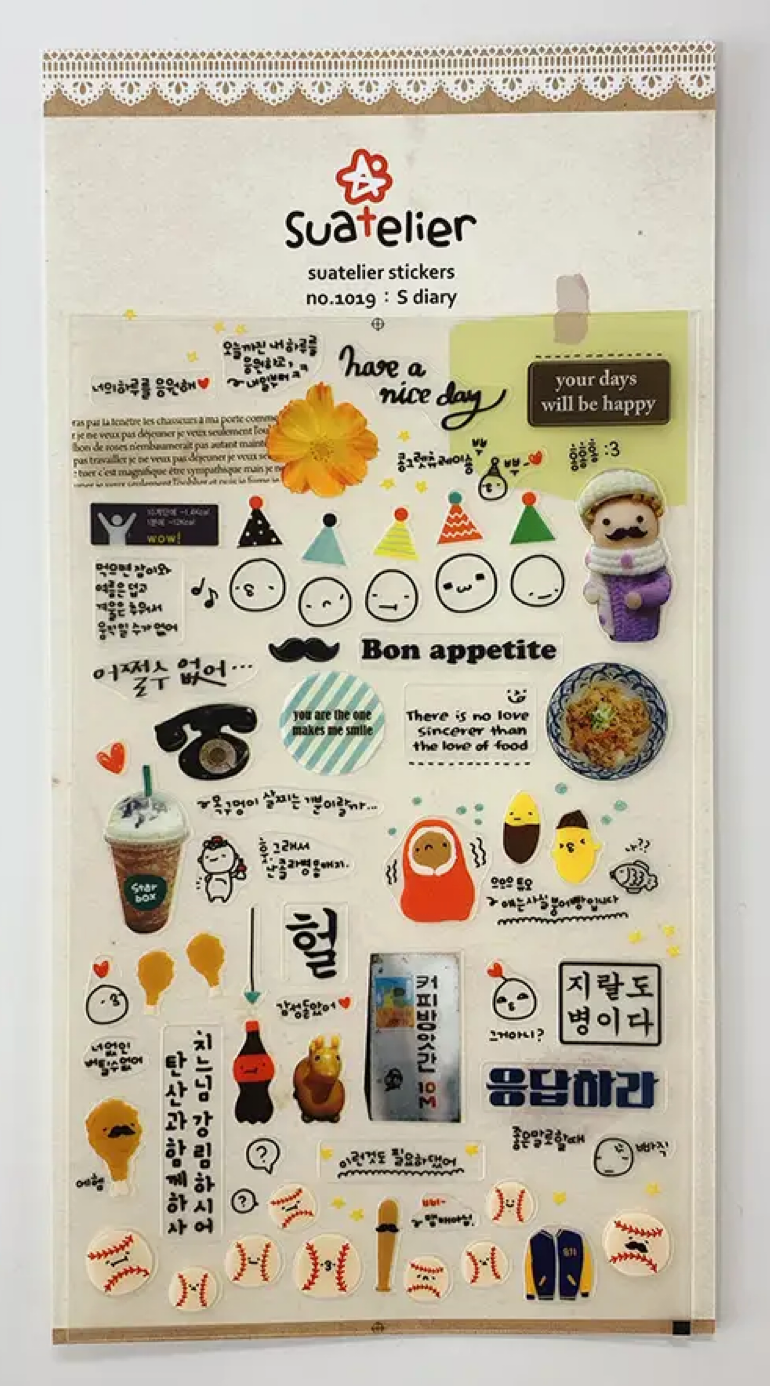 Suatelier
suatelier stickers
no.1019 : S diary
오늘까진 내 하루를
응원하고,
너의하루를 응원해
have a
nice day
your days
will be happy
ras par la fenêtre les chasseurs à ma porte comme
je ne veux pas déjeuner je veux seulement l'oubl
bon de roses n'embaumerait pas autant maint
pas travailler je ne veux pas déjeuner je veux se
tuer c'est magnifique être sympathique mais je ne
콩그렛츄레이숑
뿌
뿌~
응응응 :3
wow!
먹으면 잠이와
여름은 덥고
겨울은 추워서
움직일 수가 없어
어쩔수 없어...
Bon appetite
you are the one
makes me smile
There is no love
sincerer than
the love of food
~목구멍이 살찌는 기분이랄까...
Star
box
그래서
콜라병몸매지.
나??
으으으 튜오
~ 얘는사실 붕어빵입니다
헐
감성돋았어
커피방앗간
10
M
그거아니?
지랄도
병이다
너없인
버틸수없어
치느님 강림하시어
탄산과 함께하사
응답하라
에헴
?
이런것도 필요하댔어
좋은말로할때
빠직
?
빠-
~맴매야잉.